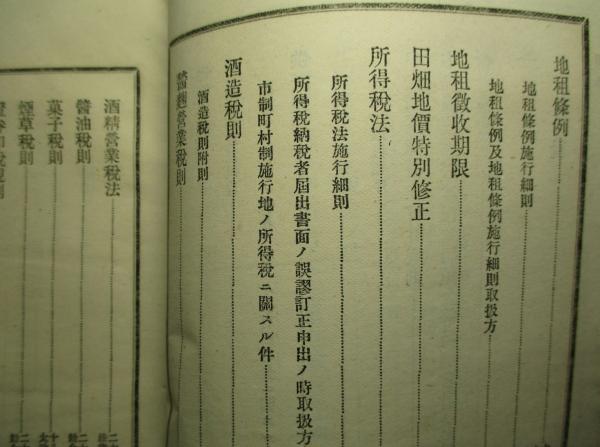 地租條例
地租條例施行細則
地租條例及地租條例施行細則取扱方
地租徵收期限
田畑地價特別修正
所得稅法
所得稅法施行細則
所得稅納稅者屆出書面ノ誤謬訂正申出ノ時取扱方
市制町村制施行地ノ所得稅ニ關スル件
酒造稅則
酒造稅則附則
營業稅則
酒精營業稅法
醬油稅則
菓子稅則
煙草稅則